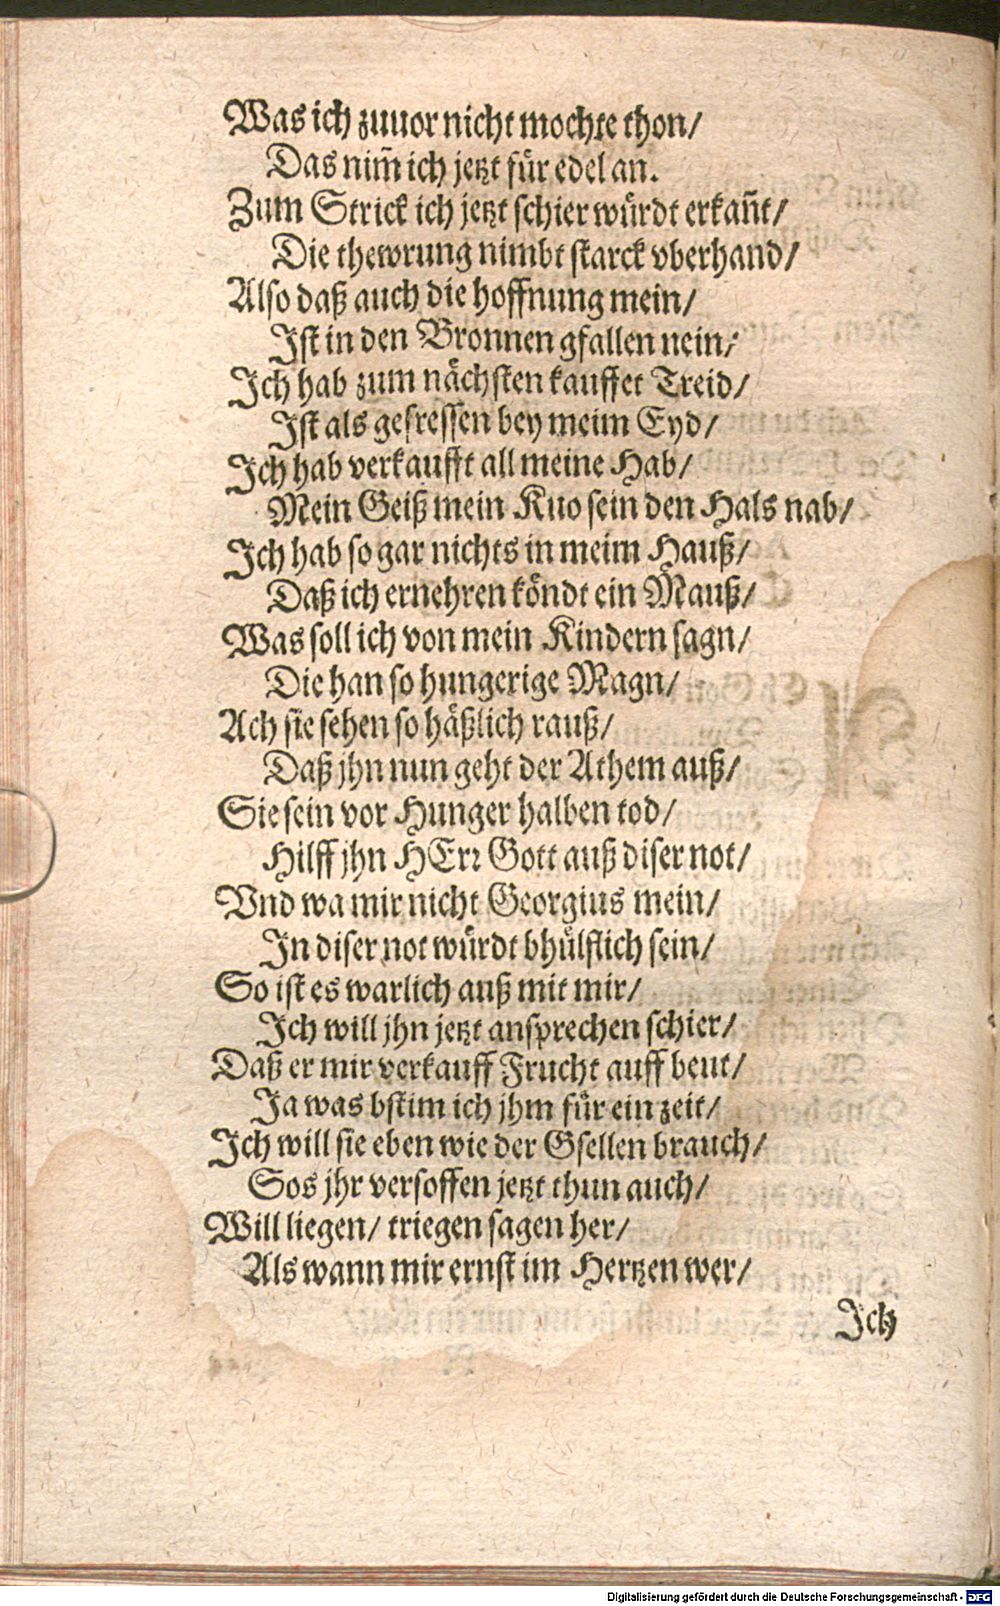 Was ich zuuor nicht mochte thon/
Das nim̃ ich jetzt für edel an.
Zum Strick ich jetzt schier würdt erkañt/
Die thewrung nimbt starck vberhand/
Also daß auch die hoffnung mein/
Ist in den Bronnen gfallen nein/
Ich hab zum nächsten kauffet Treid/
Ist als gefressen bey meim Eyd/
Ich hab verkaufft all meine Hab/
Mein Geiß mein Kuo sein den Hals nab/
Ich hab so gar nichts in meim Hauß/
Daß ich ernehren köndt ein Mauß/
Was soll ich von mein Kindern sagn/
Die han so hungerige Magn/
Ach sie sehen so häßlich rauß/
Daß jhn nun geht der Athem auß/
Sie sein vor Hunger halben tod/
Hilff jhn HErr Gott auß diser not/
Vnd wa mir nicht Georgius mein/
In diser not würdt bhülflich sein/
So ist es warlich auß mit mir/
Ich will jhn jetzt ansprechen schier/
Daß er mir verkauff Frucht auff beut/
Ja was bstim ich jhm für ein zeit/
Ich will sie eben wie der Gsellen brauch/
Sos jhr versoffen jetzt thun auch/
Will liegen/ triegen sagen her/
Als wann mir ernst im Hertzen wer/
Ich
Digitalisierung gefördert durch die Deutsche Forschungsgemeinschaft - DFG